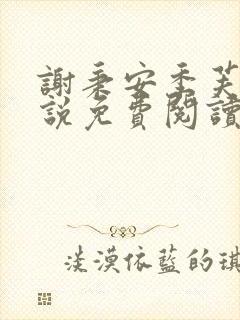 謝秉安季芙
說免費閱讀
淡漠依藍的琪